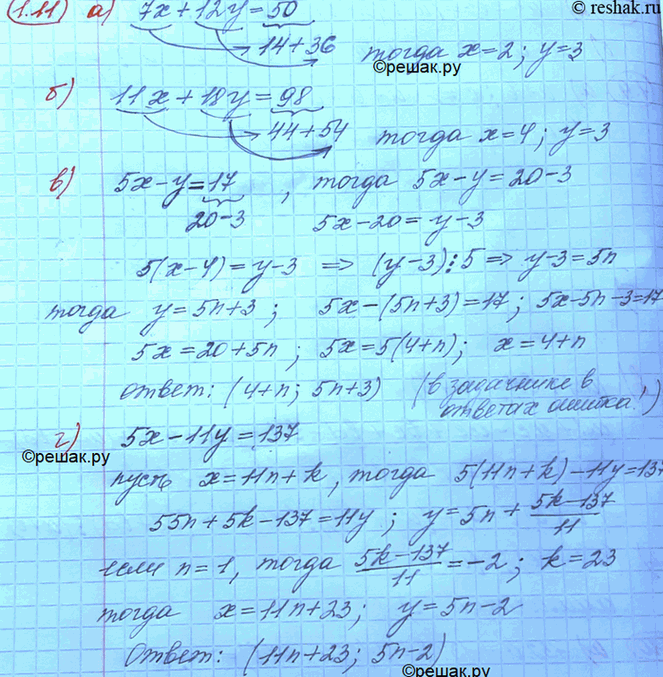 © reshak.ru
1.11 а) 7x+12y=50
14+36 тогда x=2; y=3
©решак.ру
б) 11x+18y=98
44+54 тогда x=4; y=3
в) 5x-y=17, тогда 5x-y=20-3
20-3 5x-20=y-3
5(x-4)=y-3 => (y-3)⋮5 => y-3=5n
тогда y=5n+3; 5x-(5n+3)=17; 5x-5n-3=17
5x=20+5n; 5x=5(4+n); x=4+n
ответ: (4+n; 5n+3) (в задачнике в
ответах ошибка!)
г) 5x-11y=137
©решак.ру
пусть x=11n+k, тогда 5(11n+k)-11y=137
55n+5k-137=11y; y=5n+(5k-137)/11
если n=1, тогда (5k-137)/11=-2; k=23
тогда x=11n+23; y=5n-2
Ответ: (11n+23; 5n-2)
©решак.ру